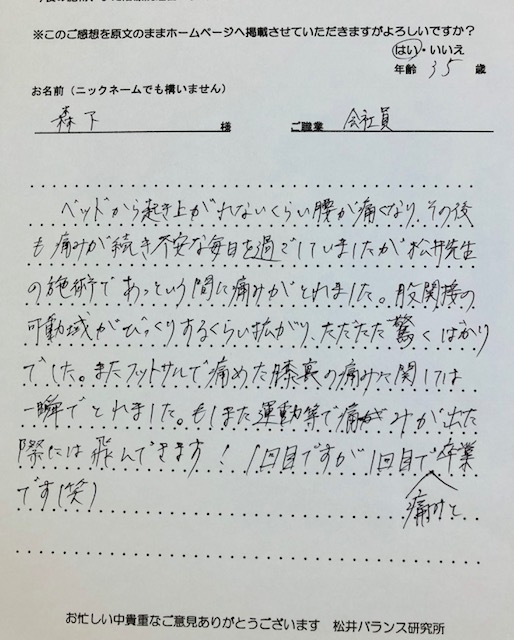 ※このご感想を原文のままホームページへ掲載させていただきますがよろしいですか？
はい・いいえ
年齢 35 歳
お名前（ニックネームでも構いません）
森下 様 ご職業 会社員
ベッドから起き上がれないくらい腰が痛くなり、その後
も痛みが続き不安な毎日を過ごしていましたが松井先生
の施術であっという間に痛みがとれました。股関接の
可動域がびっくりするくらい拡がり、ただただ驚くばかり
でした。またフットサルで痛めた膝裏の痛みに関しては
一瞬でとれました。もしまた運動等で痛みが出た
際には飛んできます！1回目ですが1回目で卒業
です(笑) 痛みを
お忙しい中貴重なご意見ありがとうございます 松井バランス研究所